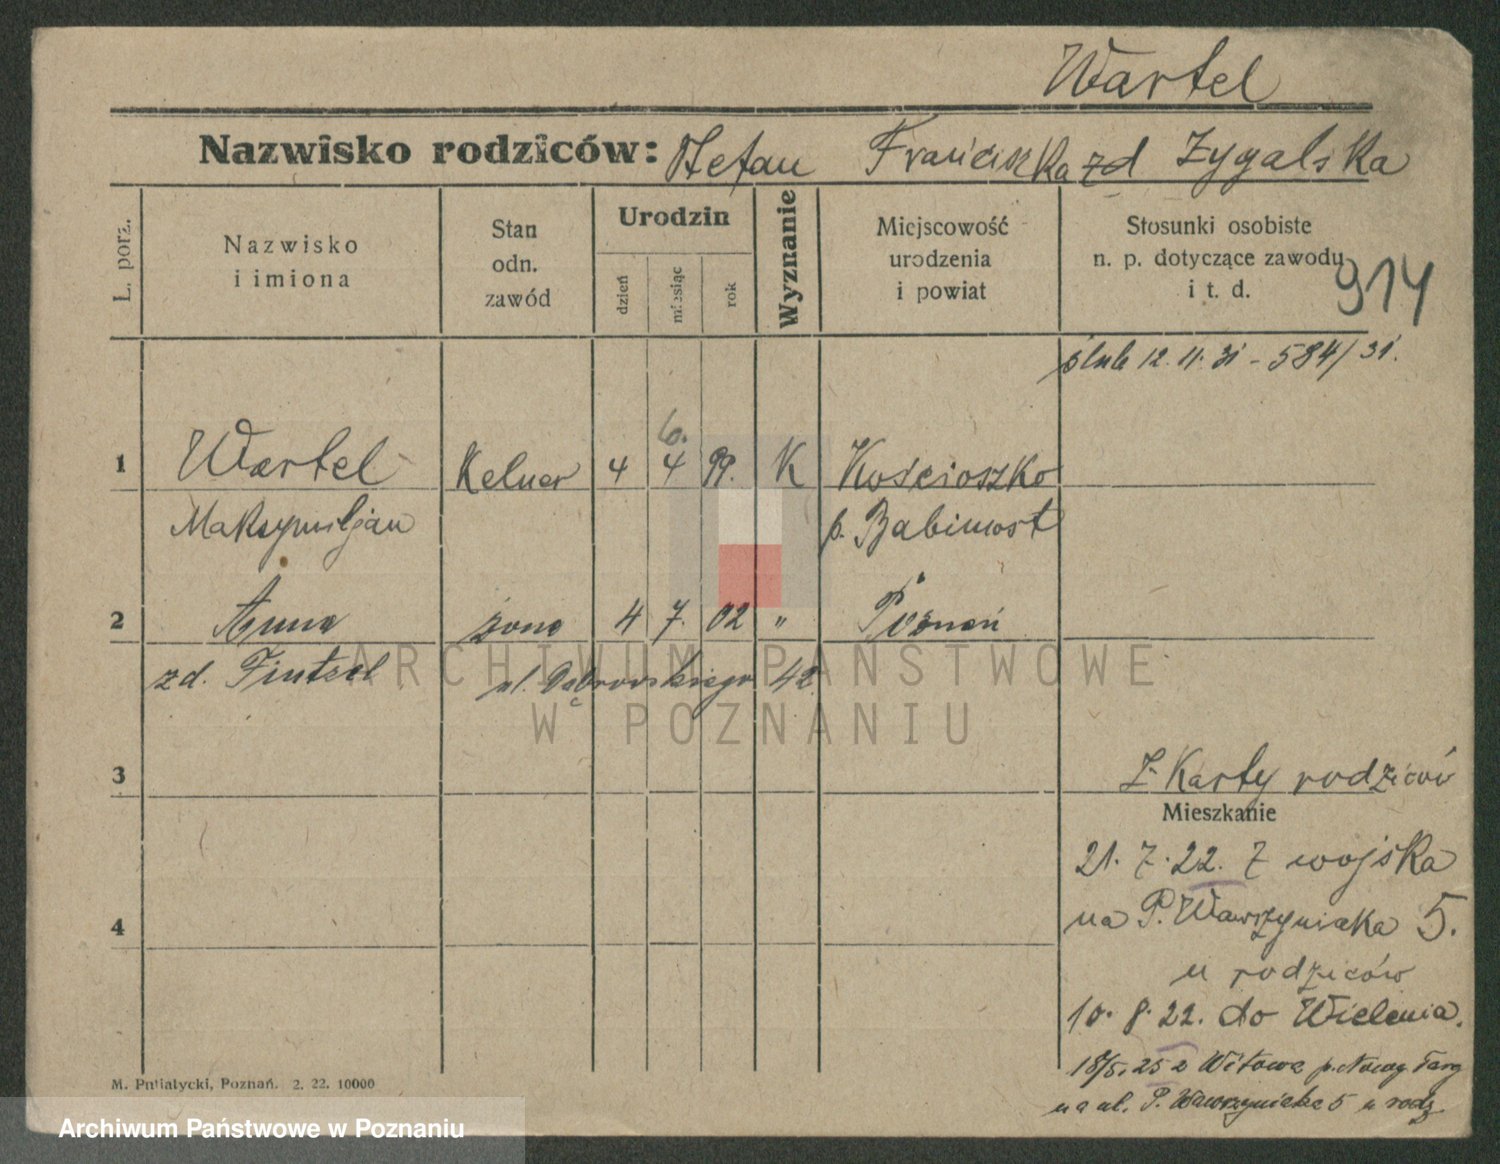 Wartel
Nazwisko rodziców: Stefan Franciszka zd Zygalska
L. porz.
Nazwisko
i imiona
Stan
odn.
zawód
Urodzin
dzień
miesiąc
rok
Wyznanie
Miejscowość
urodzenia
i powiat
Stosunki osobiste
n. p. dotyczące zawodu
i t. d.
914
ślub 12. 11. 31 - 584/31.
6.
1 Wartel Kelner 4 4 99. K Kościoszko
Maksymiljan p. Babimost
2 Anna żona 4 7. 02 „ Poznań
zd. Fintzel ul. Dąbrowskiego 42
ARCHIWUM PAŃSTWOWE
W POZNANIU
3
Z Karty rodziców
Mieszkanie
21. 7. 22. Z wojska
na P. Wawrzyniaka 5.
4
u rodziców
10. 8. 22. do Wielenia.
18/5. 25 z Witowa p. Nowy Targ
na ul. P. Wawrzyniaka 5 u rodz.
M. Putiatycki, Poznań. 2. 22. 10000
Archiwum Państwowe w Poznaniu